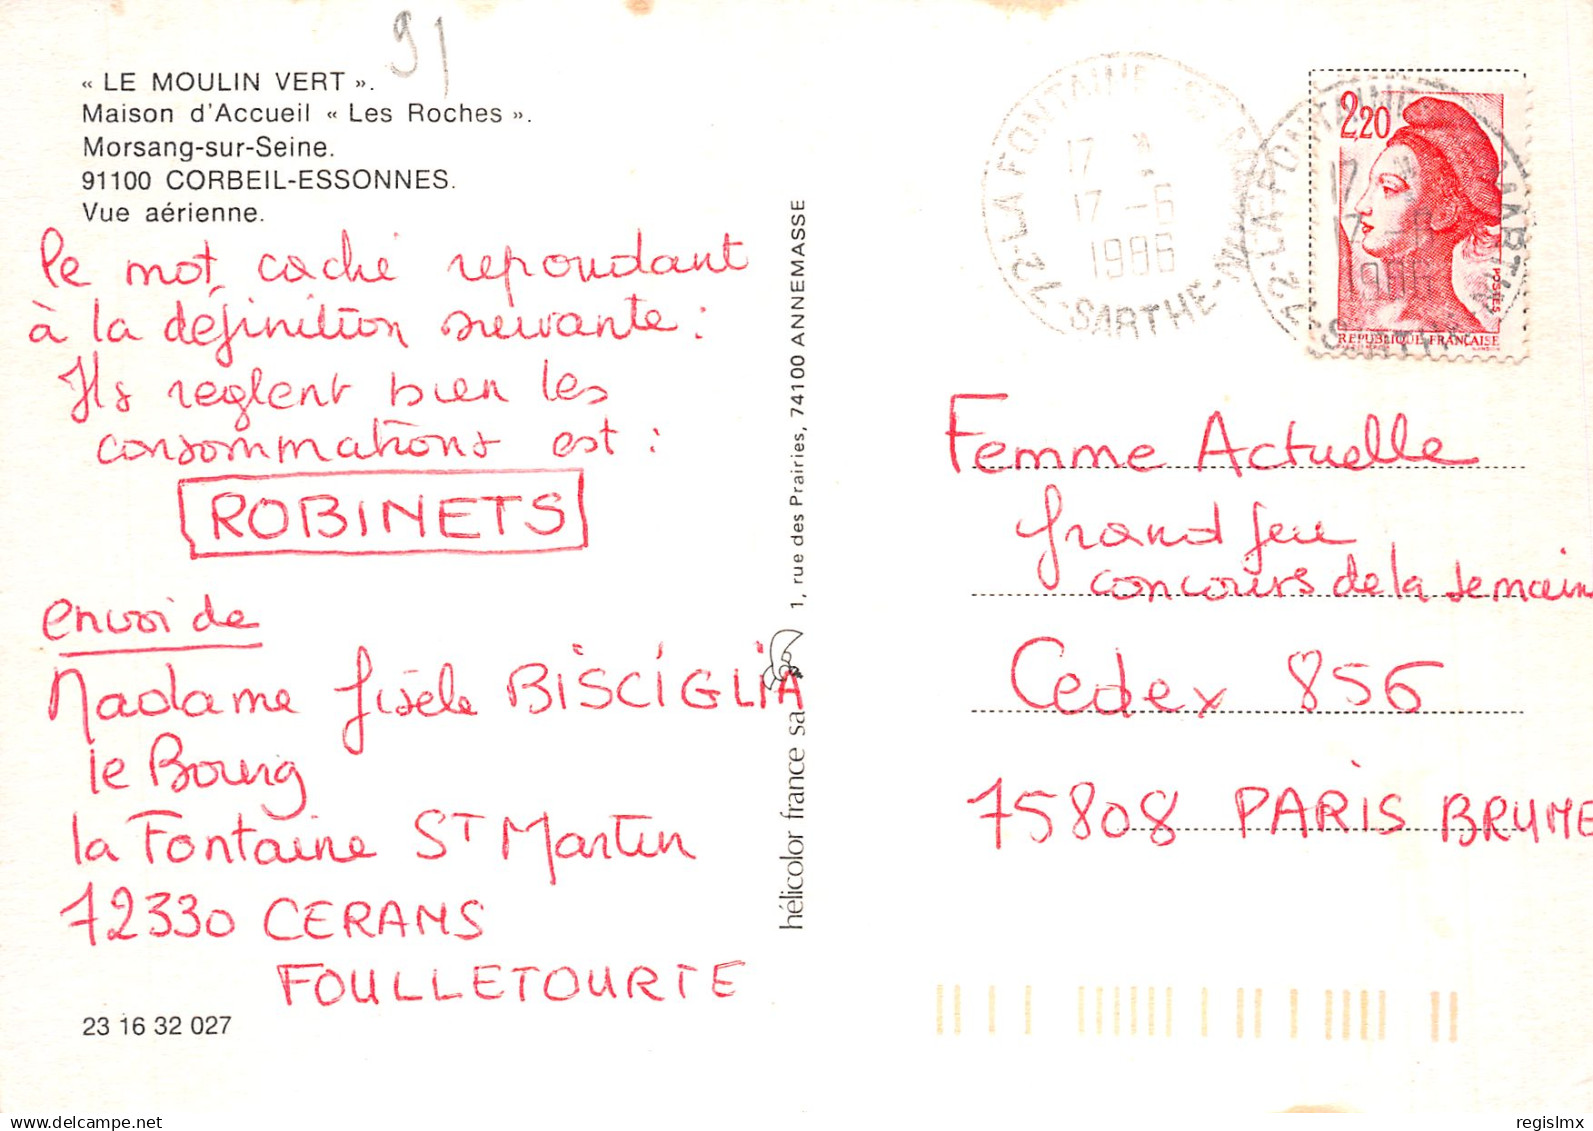 91
« LE MOULIN VERT ».
Maison d'Accueil « Les Roches ».
Morsang-sur-Seine.
91100 CORBEIL-ESSONNES.
Vue aérienne.
le mot caché repondant
à la définition suivante :
Ils reglent bien les
consommations est :
ROBINETS
envoi de
Madame Gisèle BISCIGLIA
le Bourg
la Fontaine ST Martin
72330 CERANS
FOULLETOURTE
23 16 32 027
hélicolor france sa 1, rue des Prairies, 74100 ANNEMASSE
72-LA FONTAINE
17 *
17 -6
1986
SARTHE
2,20
POSTES
REPUBLIQUE FRANÇAISE
72-LA FONTAINE
17 *
17
Femme Actuelle
Grand Jeu
concours de la semaine
Cedex 856
75808 PARIS BRUNE
regislmx